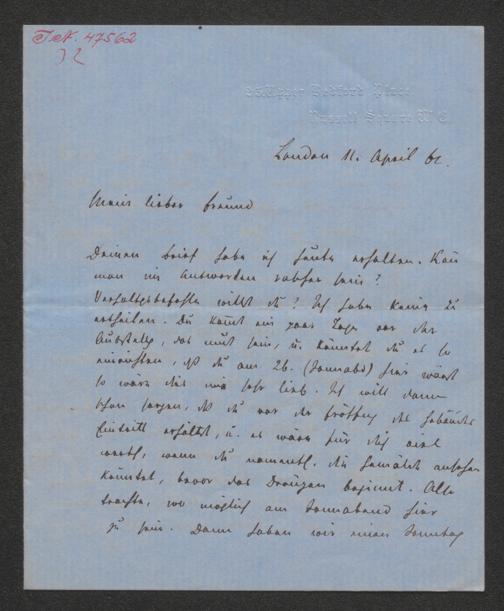 I.N. 47562
32
25 Upper Bedford Place
Russell Square W.C.
London 11. April 62.
Mein lieber Freund
Deinen Brief habe ich heute erhalten. Kann
man im Antworten rascher sein?
Verhaltsbefehle willst du? Ich habe keine zu
ertheilen. Du kömst ein paar Tage vor der
Ausstellg, das muß sein, u. könntest du es so
einrichten, dß du am 26. (Sonnabd) hier wärst
so wäre dies mir sehr lieb. Ich will dann
schon sorgen, dß du vor der Eröffng des Gebäudes
Eintritt erhältst, u. es wäre für dich viel
werth, wenn du namentl. die Gemälde ansehen
könntest, bevor das Drängen beginnt. Also
trachte, wo möglich am Sonnabend hier
zu sein. Dann haben wir einen Sonntag